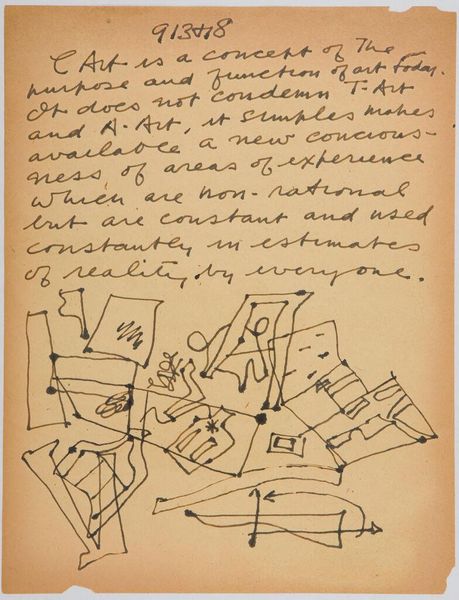 C Art is a concept of The
purpose and function of art today.
It does not condemn T. Art
and A. Art, it simples makes
available a new concious-
ness of areas of experience
which are non-rational
but are constant and used
constantly in estimates
of reality by everyone.